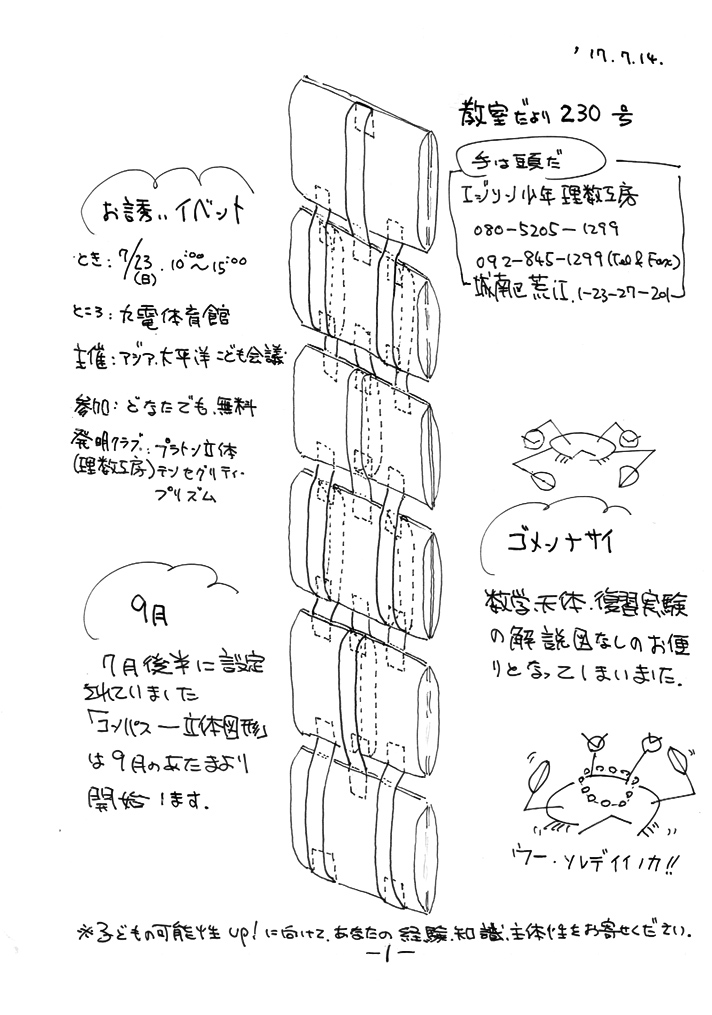 '17.7.14.
教室だより 230 号
手は頭だ
エジソン少年 理数工房
080-5205-1299
092-845-1299(Tel & Fax)
城南区荒江.1-23-27-201
お誘いイベント
とき:7/23(日).10:00~15:00
ところ:九電体育館
主催:アジア.太平洋こども会議
参加:どなたでも.無料
発明クラブ:プラトン立体
(理数工房)テンセグリティー
プリズム
ゴメンナサイ
数学.天体.復習実験
の解説図なしのお便
りとなってしまいました.
9月
7月後半に設定
されていました
「コンパス―立体図形」
は9月のあたまより
開始します.
ウー・ソレデイイノカ!!
※子どもの可能性up!に向けて.あなたの経験.知識.主体性をお寄せください.
-1-